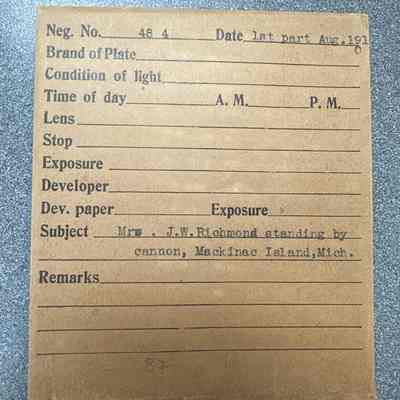 Neg. No. 48 4 Date 1st part Aug.191
0
Brand of Plate
Condition of light
Time of day A. M. P. M.
Lens
Stop
Exposure
Developer
Dev. paper Exposure
Subject Mrs . J.W.Richmond standing by
cannon, Mackinac Island,Mich.
Remarks
87